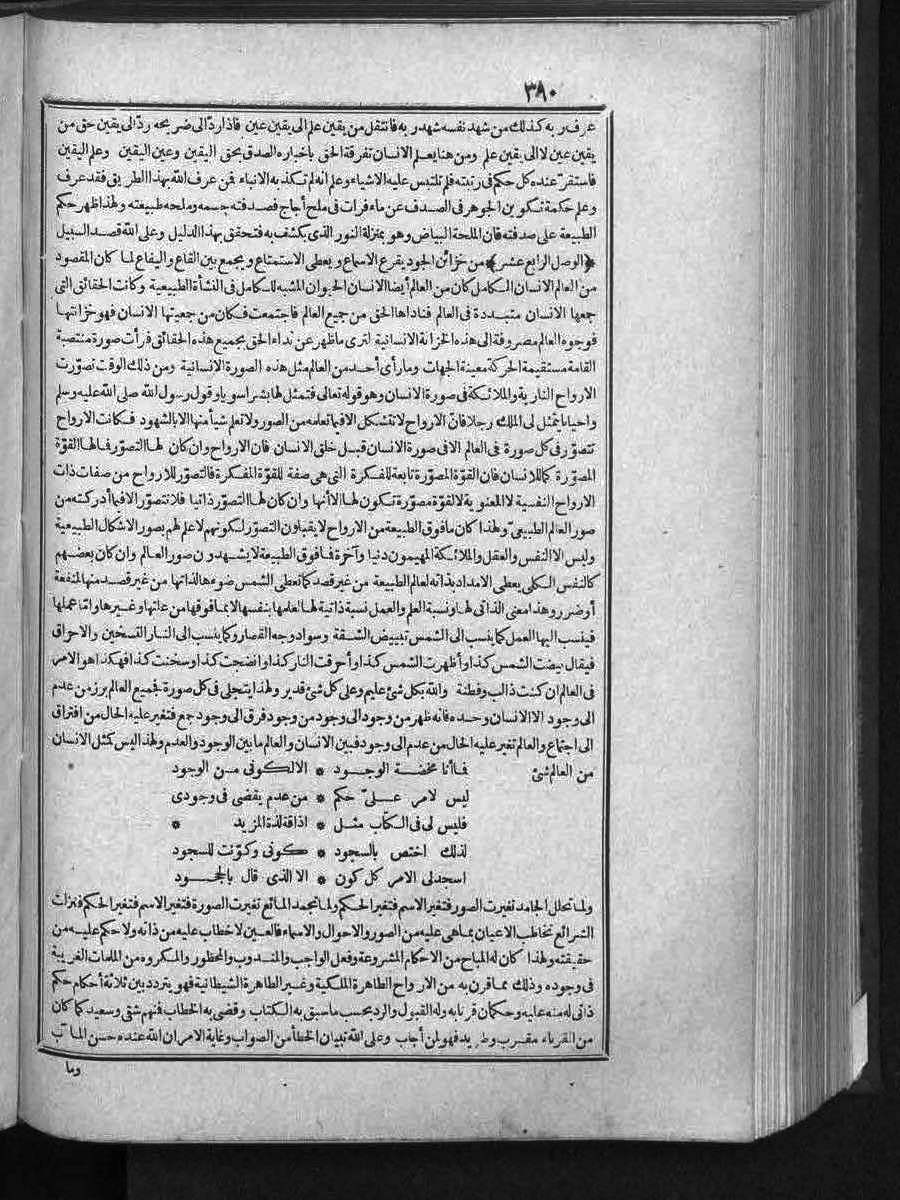 ٣٩٠
عرف ربه كذلك من شهد نفسه شهد ربه فانتقل من يقين علم الى يقين عين فاذا ردّ الى ضريحه ردّ الى يقين حق من
يقين عين لا الى يقين علم ومن هنا يعلم الانسان تفرقة الحق باخباره الصدق بحق اليقين وعين اليقين وعلم اليقين
فاستقرّ عنده كل حكم فى رتبته فلم تلتبس عليه الاشياء وعلم انه لم تكذبه الانباء فمن عرف الله بهذا الطريق فقد عرف
وعلم حكمة تكوين الجوهر فى الصدف عن ماء فرات فى ملح أجاج فصدفته جسمه وملحه طبيعته ولهذا ظهر حكم
الطبيعة على صدفته فان الملحة البياض وهو بمنزلة النور الذى يكشف به فتحقق بهذا الدليل وعلى الله قصد السبيل
﴿الوصل الرابع عشر﴾ من خزائن الجود يقرع الاسماع ويعطى الاستمتاع ويجمع بين القاع واليفاع لما كان المقصود
من العالم الانسان الكامل كان من العالم أيضا الانسان الحيوان المشبه للكامل فى النشأة الطبيعية وكانت الحقائق التى
جمعها الانسان متبددة فى العالم فناداها الحق من جميع العالم فاجتمعت فكان من جمعيتها الانسان فهو خزانتها
فوجوه العالم مصروفة الى هذه الخزانة الانسانية لترى ما ظهر عن نداء الحق بجميع هذه الحقائق فرأت صورة منتصبة
القامة مستقيمة الحركة معينة الجهات وما رأى أحد من العالم مثل هذه الصورة الانسانية ومن ذلك الوقت تصوّرت
الارواح النارية والملائكة فى صورة الانسان وهو قوله تعالى فتمثل لها بشرا سويا وقول رسول الله صلى الله عليه وسلم
وأحيانا يتمثل لى الملك رجلا فانّ الارواح لا تتشكل الا فيما تعلمه من الصور ولا تعلم شيأ منها الا بالشهود فكانت الارواح
تتصوّر فى كل صورة فى العالم الا فى صورة الانسان قبل خلق الانسان فان الارواح وان كان لها التصوّر فما لها القوّة
المصوّرة كما للانسان فان القوّة المصوّرة تابعة للفكرة التى هى صفة للقوّة المفكرة فالتصوّر للارواح من صفات ذات
الارواح النفسية لا المعنوية لا لقوّة مصوّرة تكون لها الا أنها وان كان لها التصوّر ذاتيا فلا تتصوّر الا فيما أدركته من
صور العالم الطبيعىّ ولهذا كان ما فوق الطبيعة من الارواح لا يقبلون التصوّر لكونهم لا علم لهم بصور الاشكال الطبيعية
وليس الا النفس والعقل والملائكة المهيمون دنيا وآخرة فما فوق الطبيعة لا يشهدون صور العالم وان كان بعضهم
كالنفس الكلى يعطى الامداد بذاته لعالم الطبيعة من غير قصد كما تعطى الشمس ضوءها لذاتها من غير قصد منها لمنفعة
أو ضرر وهذا معنى الذاتى لها ونسبة العلم والعمل نسبة ذاتية لها لعلمها بنفسها لا بما فوقها من علتها وغيرها وانما عملها
فينسب اليها العمل كما ينسب الى الشمس تبييض الشقة وسواد وجه القصار وكما ينسب الى النار التسخين والاحراق
فيقال بيضت الشمس كذا وأظهرت الشمس كذا وأحرقت النار كذا وانضجت كذا وسخنت كذا فهكذا هو الامر
فى العالم ان كنت ذا لب وفطنة والله بكل شئ عليم وعلى كل شئ قدير ولهذا يتجلى فى كل صورة فجميع العالم برز من عدم
الى وجود الا الانسان وحده فانه ظهر من وجود الى وجود من وجود فرق الى وجود جمع فتغير عليه الحال من افتراق
الى اجتماع والعالم تغير عليه الحال من عدم الى وجود فبين الانسان والعالم ما بين الوجود والعدم ولهذا ليس كمثل الانسان
من العالم شئ
فما أنا محضة الوجود * الا لكونى من الوجود
ليس لامر علىّ حكم * من عدم يقضى فى وجودى
فليس لى فى الكتاب مثل * اذاقة لذة المزيد *
لذلك اختص بالسجود * كونى وكوّنت للسجود
اسجد لى الامر كل كون * الا الذى قال بالجحود
ولما تحلل الجامد تغيرت الصور فتغير الاسم فتغير الحكم ولما تجمد المائع تغيرت الصورة فتغير الاسم فتغير الحكم فنزلت
الشرائع تخاطب الاعيان بما هى عليه من الصور والاحوال والاسماء فالعين لا خطاب عليه من ذاته ولا حكم عليه من
حقيقته ولهذا كان له المباح من الاحكام المشروعة وفعل الواجب والمندوب والمحظور والمكروه من اللمات الغريبة
فى وجوده وذلك مما قرن به من الارواح الطاهرة الملكية وغير الطاهرة الشيطانية فهو يتردد بين ثلاثة أحكام حكم
ذاتى له منه عليه وحكمان قرنا به وله القبول والرد بحسب ما سبق به الكتاب وقضى به الخطاب فمنهم شقى وسعيد كما كان
من القرناء مقرب وطريد فهو لمن أجاب وعلى الله تبيان الخطأ من الصواب وغاية الامر ان الله عنده حسن المآب
وما